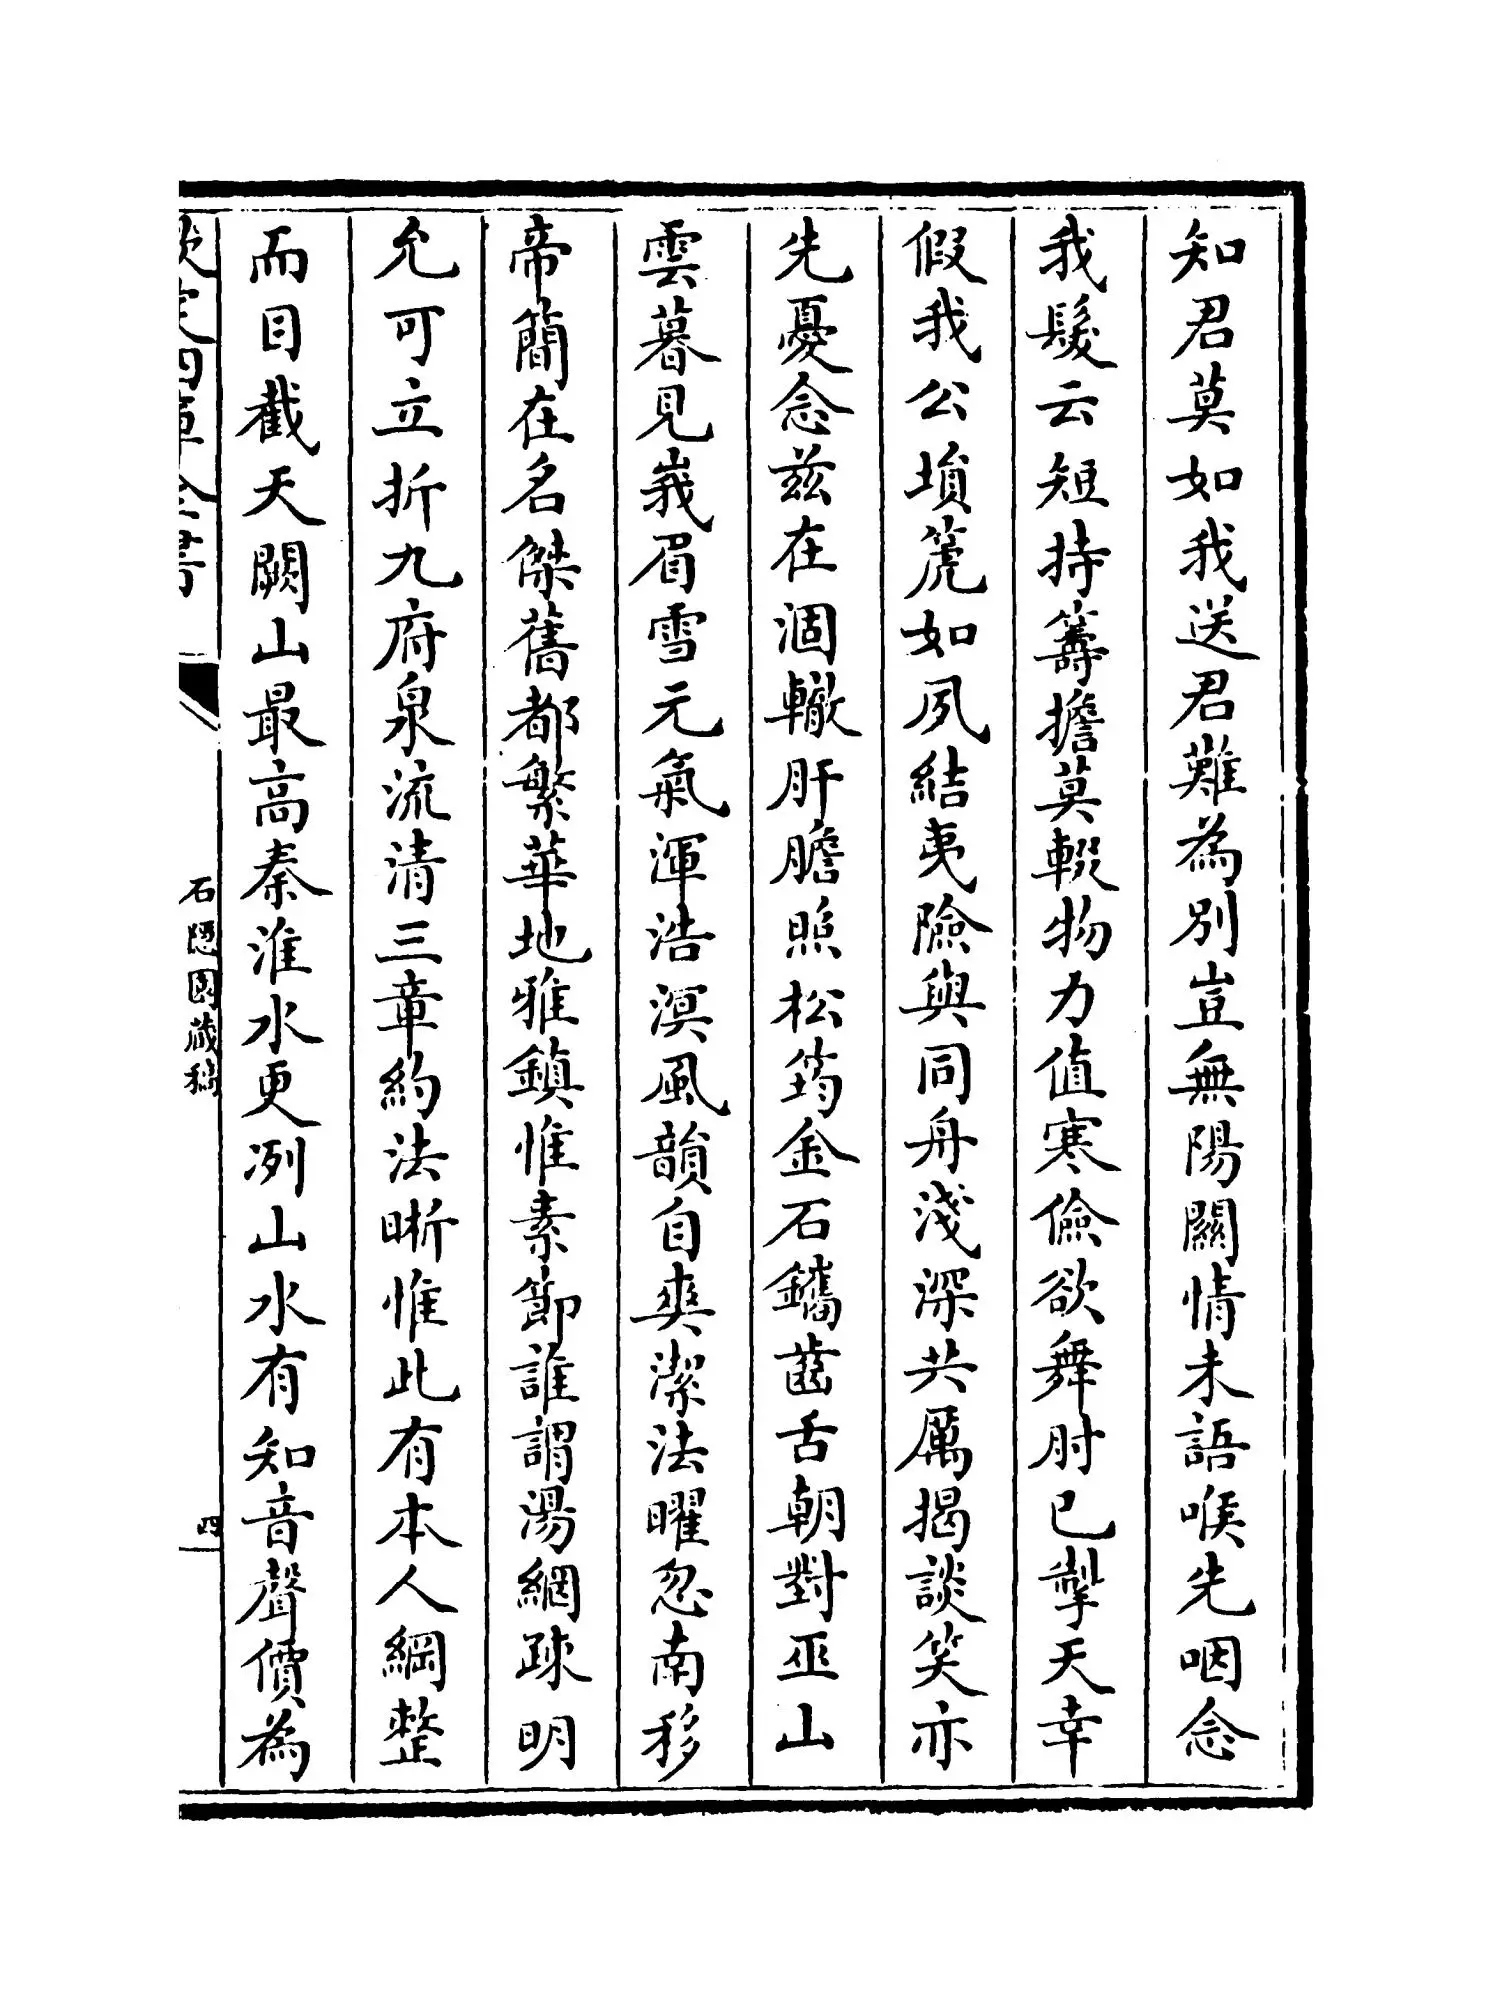 知君莫如我送君難為别豈無陽關情未語喉先咽念
我髮云短持籌擔莫輟物力值寒儉欲舞肘已掣天幸
假我公塤篪如夙結夷險與同舟淺深共厲揭談笑亦
先憂念兹在涸轍肝膽照松筠金石鑴齒舌朝對巫山
雲暮見峩眉雪元氣渾浩溟風韻自爽潔法曜忽南移
帝簡在名傑舊都繁華地雅鎮惟素節誰謂湯網疎明
允可立折九府泉流清三章約法晰惟此有本人綱整
而目截天闕山最高秦淮水更冽山水有知音聲價為
欽定四庫全書
石隱園藏稿
四